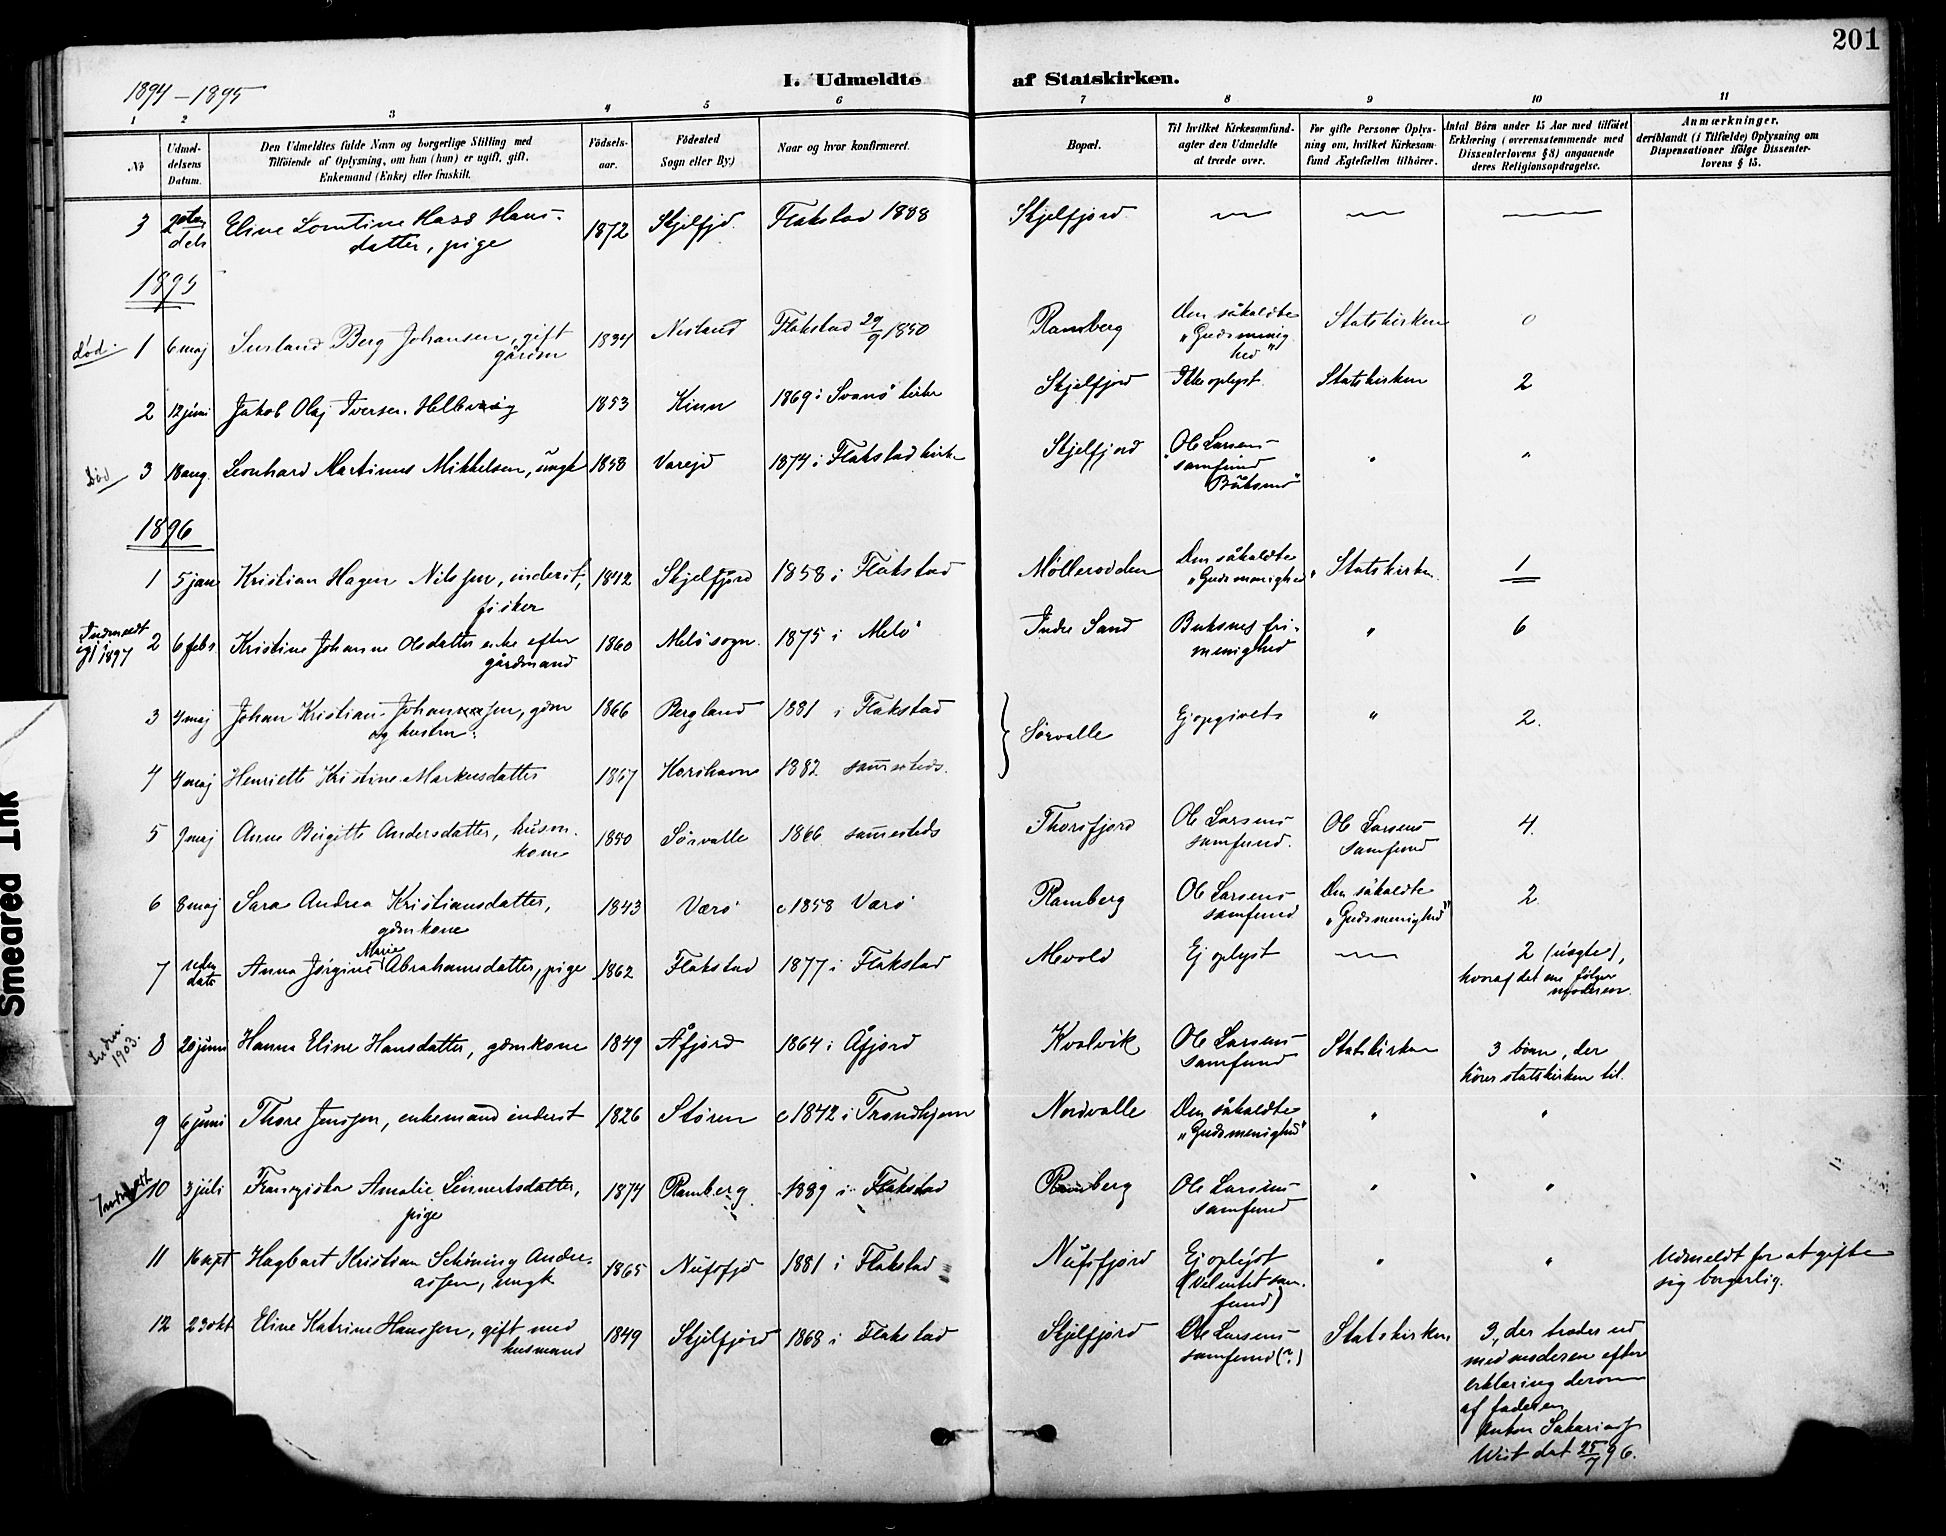 201
1894 – 1895
I. Udmeldte af Statskirken.
1 2 3 4 5 6 7 8 9 10 11
No
Udmel-
delsens
Datum.
Den Udmeldtes fulde Navn og borgerlige Stilling med
Tilföiende af Oplysning, om han (hun) er ugift, gift,
Enkemand (Enke) eller fraskilt.
Födsels-
aar.
Födested
Sogn eller By)
Naar og hvor konfirmeret.
Bopæl.
Til hvilket Kirkesamfund-
agter den Udmeldte
at træde over.
For gifte Personer Oplys-
ning om, hvilket Kirkesam-
fund Ægtefællen tilhörer.
Antal Börn under 15 Aar med tilföiet
Erklæring (overensstemmende med
Dissenterlovens § 8) angaaende
deres Religionsopdragelse.
Anmærkninger,
deriblandt (i Tilfælde) Oplysning om
Dispensationer ifölge Dissenter-
lovens § 15.
3 Eline Hass Hans-
datter, pige 1872 Skjelfjd. Flakstad 1888 Skjelfjord
1895
død. 1 6 maj Berg Johansen, gift
1834 Nesland Flakstad 29/9 1850 Ramberg Den såkaldte
"Gudsmenig
hed" Statskirken 0
2 12 juni Jakob Olaj Iversen Hellevig 1853 Kinn 1869 i Svanø kirke Skjelfjord Ikke oplyst. Statskirken 2
død 3 18 aug. Leonhard Martinus Mikkelsen, ungk 1858 Varejd 1874 i Flakstad kirke Skjelfjord Ole Larsens
samfund
Buksnes" " "
1896
1 5 jan Kristian Hagen Nilssen, inderst,
fisker 1842 Skjelfjord 1858 i Flakstad Møllerodden Den såkaldte
"Gudsmenighed" Statskirken. 1
Indmeldt
igj. i 1897 2 6 febr Kristine Johanne Olsdatter enke efter
gårdmand 1860 Melø sogn. 1875 i Melø Indre Sand Buksnes fri-
menighed " 6
3 4 maj Johan Kristian Johannessen, gdm
og hustru: 1866 Bergland 1881 i Flakstad Sørvalle Ej opgivets " 2.
4 4 maj Henriette Kristine Markusdatter 1867 Korshavn 1882 sammesteds.
5 7 maj Anne Birgitte Andersdatter, husm.
kone 1850 Sørvalle 1866 sammesteds Thorsfjord Ole Larsens
samfund. Ole Larsens
samfund 4.
6 8 maj Sara Andrea Kristiansdatter,
gdmkone 1843 Værø c 1858 Værø Ramberg Ole Larsens
samfund Den såkaldte
"Gudsmenighed" 2.
7 uden
dato Anna Jørgine Marie Abrahamsdatter, pige 1862 Flakstad 1877 i Flakstad Mevold Ej oplyst 2 (uægte),
hvoraf det ene følger
moderen.
Indm.
1903. 8 20 juni Hanna Eline Hansdatter, gdmkone 1849 Åfjord 1864 i Åfjord Kvalvik Ole Larsens
samfund Statskirken 3 børn, der
hører statskirken til.
9 6 juni Thore Jenssen, enkemand inderst 1826 Støren c 1842 i Trondhjem Nordvalle Den såkaldte
"Gudsmenighed" " "
Indmeldt 10 3 juli Franziska Amalie Linnertsdatter,
pige 1874 Ramberg 1889 i Flakstad Ramberg Ole Larsens
samfund " "
11 16 sept Hagbart Kristian Schöning Andre-
assen, ungk 1865 Nufsfjd 1881 i Flakstad Nufsfjord Ej oplyst
samfund) " " Udmeldt for at gifte
sig borgerlig.
12 23 okt Eline Katrine Hanssen, gift med
husmand 1849 Skjelfjord 1868 i Flakstad Skjelfjord Ole Larsens
samfund (?) Statskirken 3, der træder ud
med moderen efter
erklæring derom
af faderen
Anton
dat 25/7 96.
Smeared Ink